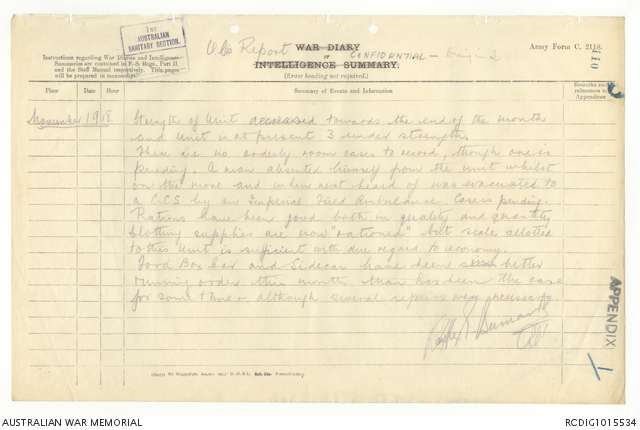 1st
AUSTRALIAN
SANITARY SECTION.
O.C's Report
WAR DIARY
or
INTELLIGENCE SUMMARY.
(Erase heading not required.)
CONFIDENTIAL
Army Form C. 2118.
Instructions regarding War Diaries and Intelligence
Summaries are contained in F. S. Regs., Part II
and the Staff Manual respectively. Title pages
will be prepared in manuscript.
Place
Date
Hour
Summary of Events and Information
Remarks and
references to
Appendices
November 1918.
Strength of Unit decreased towards the end of the month
and Unit is at present 3 under strength.
There are no orderly room cases to record, though one is
pending. A man absented himself from the unit whilst
on the move and when next heard of was evacuated to
a C.C.S by an Imperial Field Ambulance. Case is pending.
Rations have been good both in quality and quantity
Clothing supplies are now "rationed" but scale allotted
to this Unit is sufficient with due regard to economy.
Ford Box Car and Sidecar have been in better
running order this month than has been the case
for some time - although several repairs were necessary.
APPENDIX 1
AUSTRALIAN WAR MEMORIAL
RCDIG1015534